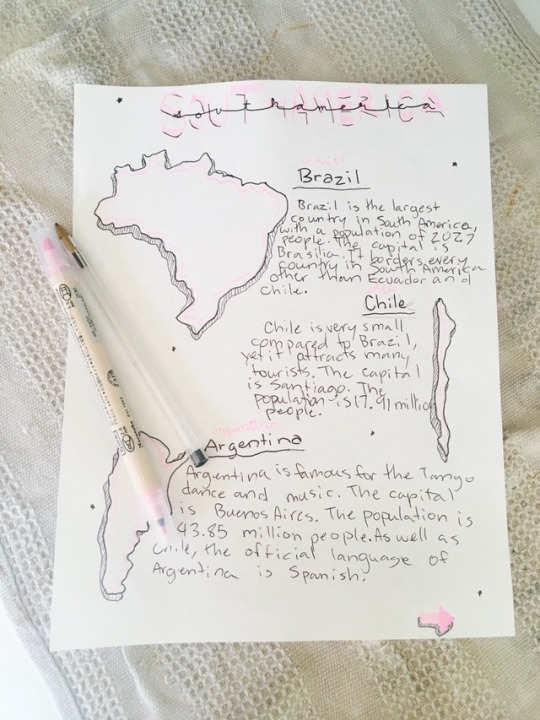 SOUTH AMERICA
south america
Brazil
Brazil is the largest
country in South America,
with a population of 2027
people. The capital is
Brasilia. It borders every
country in South America
other than Ecuador and
Chile.
Chile
Chile is very small
compared to Brazil,
yet it attracts many
tourists. The capital
is Santiago. The
population is 17.91 million
people.
argentina
Argentina
Argentina is famous for the Tango
dance and music. The capital
is Buenos Aires. The population is
43.85 million people. As well as
Chile, the official language of
Argentina is Spanish.